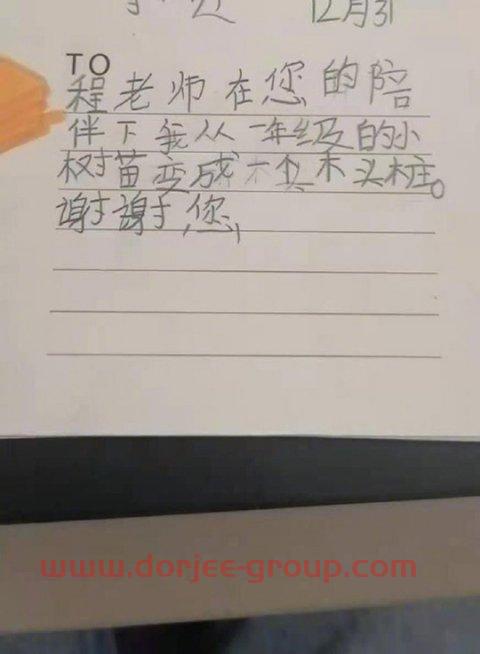 12月31
TO
程老师在您的陪
伴下我从一年级的小
树苗变成木头桩。
谢谢您,
www.dorjee-group.com